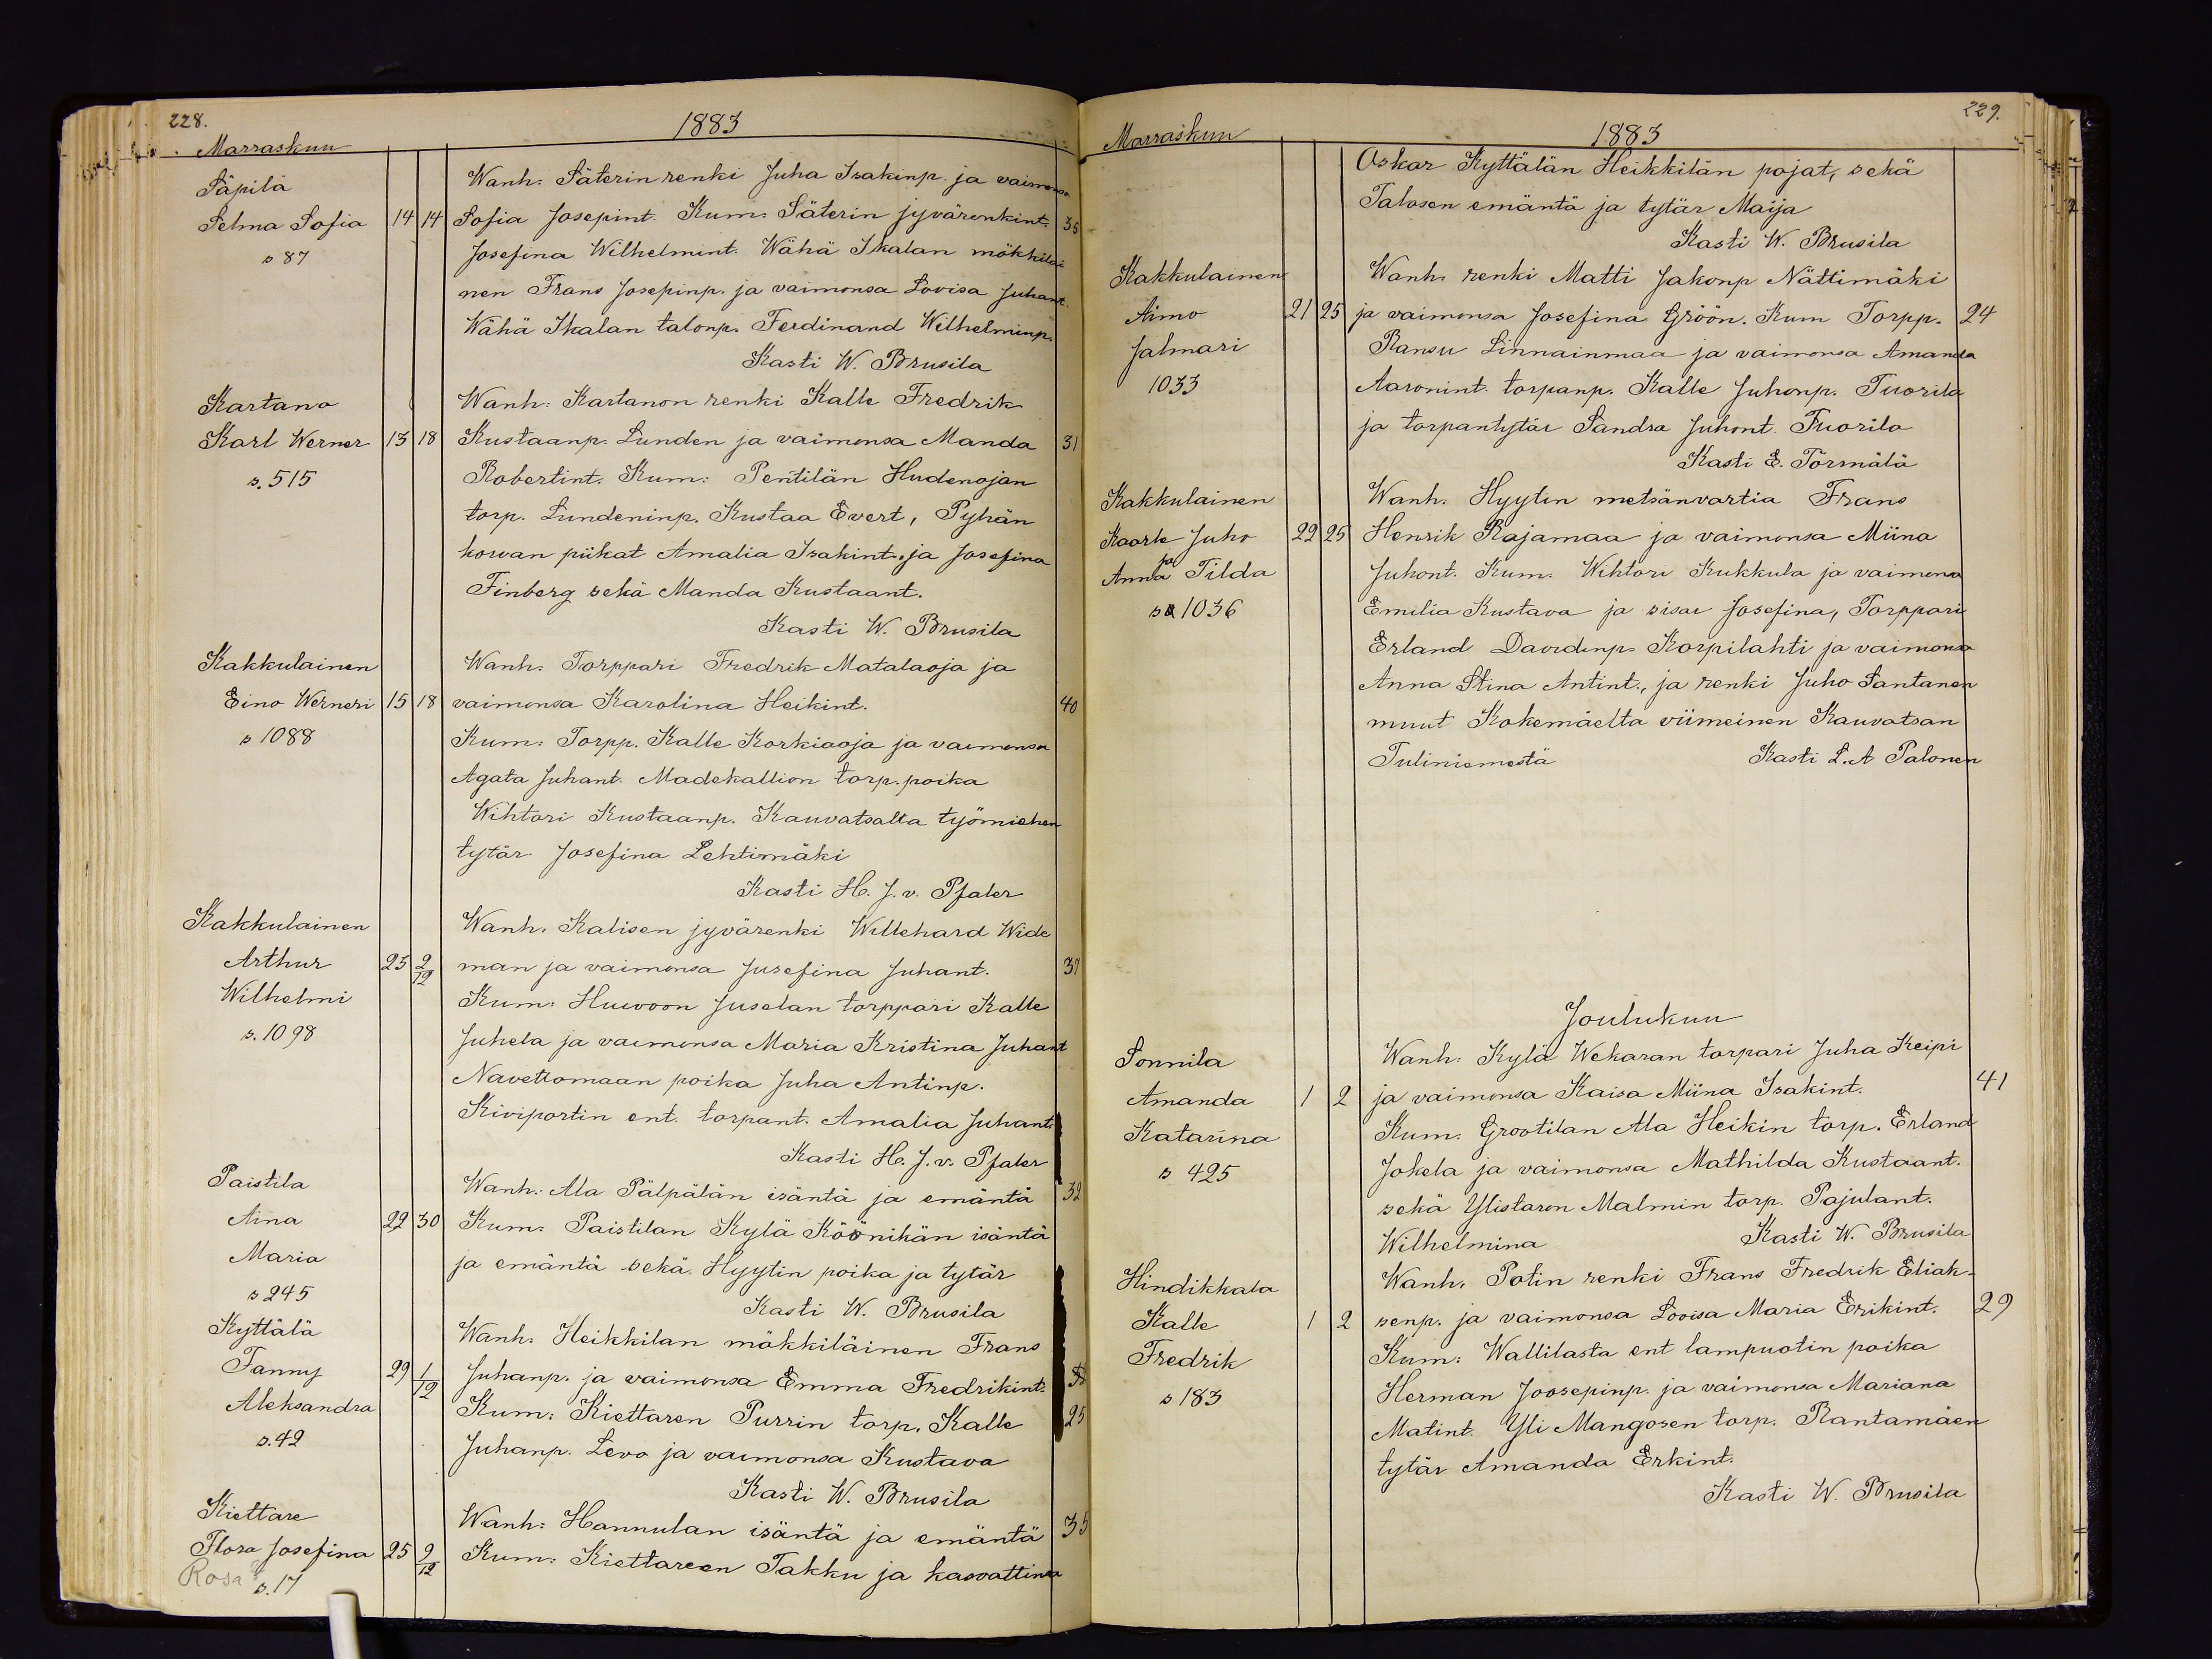 228.
1883
Marraskuu
Säpilä
Wanh. Säterin renki Juha Isakinp. ja vaimonsa
Selma Sofia 14 14 Sofia Josepint. Kum: Säterin jyvärenkint. 35
s 87
Josefina Wilhelmint. Wähä Ikalan mökkiläi
nen Frans Josepinp. ja vaimonsa Lovisa Juhant.
Wähä Ikalan talonp. Ferdinand Wilhelminp.
Kasti W. Brusila
Kartano
Wanh: Kartanon renki Kalle Fredrik
Karl Werner 13 18 Kustaanp. Lunden ja vaimonsa Manda 31
s. 515
Robertint. Kum: Penttilän Hudenojan
torp. Lundeninp. Kustaa Evert, Pyhän
korvan piikat Amalia Isakint. ja Josefina
Finberg sekä Manda Kustaant.
Kasti W. Brusila
Kakkulainen
Wanh: Torppari Fredrik Matalaoja ja
Eino Werneri 15 18 vaimonsa Karolina Heikint. 40
s 1088
Kum: Torpp. Kalle Korkiaoja ja vaimonsa
Agata Juhant. Madekallion torp. poika
Wihtori Kustaanp. Kauvatsalta työmiehen
tytär Josefina Lehtimäki
Kasti H. J. v. Pfaler
Kakkulainen
Wanh. Kalisen jyvärenki Willehard Wide
Arthur 23 2/12 man ja vaimonsa Jusefina Juhant. 37
Wilhelmi
Kum: Huwoon Juselan torppari Kalle
s. 1098
Juhela ja vaimonsa Maria Kristina Juhant
Navettomaan poika Juha Antinp.
Kiviportin ent. torpant. Amalia Juhant.
Kasti H. J. v. Pfaler
Paistila
Wanh: Ala Pälpälän isäntä ja emäntä 32
Aina 22 30 Kum: Paistilan Kylä Köönikän isäntä
Maria
ja emäntä sekä Hyytin poika ja tytär
s 245
Kasti W. Brusila
Kyttälä
Wanh: Heikkilan mökkiläinen Frans
Fanny 29 1/12 Juhanp. ja vaimonsa Emma Fredrikint.
Aleksandra
Kum: Kiettaren Purrin torp. Kalle 25
s. 42
Juhanp. Levo ja vaimonsa Kustava
Kasti W. Brusila
Kiettare
Wanh: Hannulan isäntä ja emäntä 35
Flora Josefina 25 2/12 Kum: Kiettareen Takku ja kasvattinsa
Rosa s. 17
229.
1883
Marraskuu
Oskar Kyttälän Heikkilän pojat, sekä
Talosen emäntä ja tytär Maija
Kasti W. Brusila
Kakkulainen
Wanh. renki Matti Jakonp Nättimäki
Aimo 21 25 ja vaimonsa Josefina Gröön. Kum Torpp. 24
Jalmari
Ransu Linnainmaa ja vaimonsa Amanda
1033
Aaronint. torpanp. Kalle Juhonp. Tuorila
ja torpantytär Sandra Juhont. Tuorila
Kasti E. Törmälä
Kakkulainen
Wanh. Hyytin metsänvartia Frans
Kaarle Juho 22 25 Henrik Rajamaa ja vaimonsa Miina
ja
Anna Tilda
Juhont. Kum. Wihtori Kukkula ja vaimonsa
s 1036
Emilia Kustava ja sisar Josefina, Torppari
Erland Davidinp. Korpilahti ja vaimonsa
Anna Stina Antint., ja renki Juho Santanen
muut Kokemäelta viimeinen Kauvatsan
Tuliniemestä Kasti L. A Palonen
Joulukuu
Sonnila
Wanh: Kylä Wekaran torpari Juha Keipi
Amanda 1 2 ja vaimonsa Kaisa Miina Isakint. 41
Katarina
Kum. Grootilan Ala Heikin torp. Erland
s 425
Jokela ja vaimonsa Mathilda Kustaant.
sekä Ylistaron Malmin torp. Pajulant.
Wilhelmina Kasti W. Brusila
Hindikkala
Wanh. Potin renki Frans Fredrik Eliak-
Kalle 1 2 senp. ja vaimonsa Lovisa Maria Erikint. 29
Fredrik
Kum: Wallilasta ent lampuotin poika
s 183
Herman Joosepinp. ja vaimonsa Mariana
Matint. Yli Mangosen torp. Rantamäen
tytär Amanda Erkint.
Kasti W. Brusila